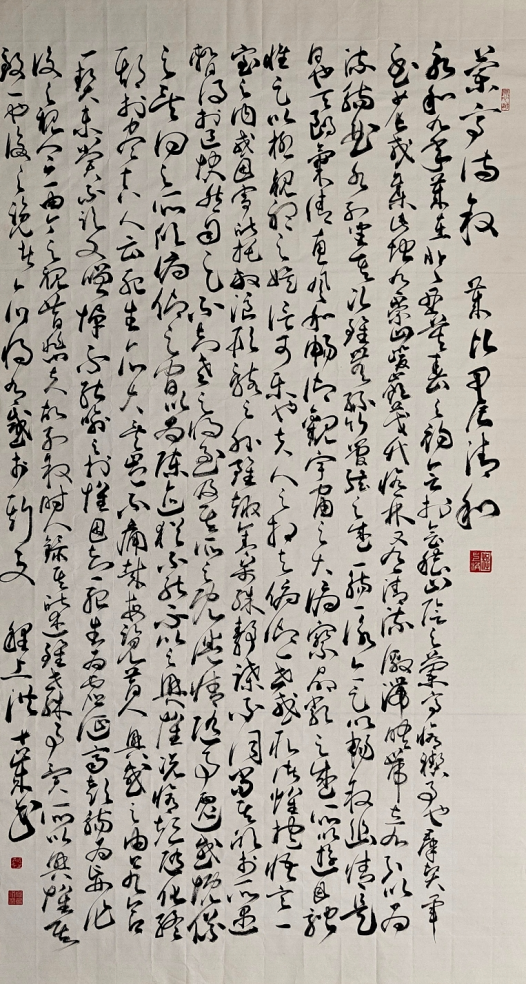 蘭亭詩敘 歲次甲辰清和
永和九年歲在癸丑暮春之初會于會稽山陰之蘭亭脩稧事也羣賢畢
至少長咸集此地有崇山峻嶺茂林脩竹又有清流激湍暎帶左右引以為
流觴曲水列坐其次雖無絲竹管弦之盛一觴一詠亦足以暢敘幽情是
日也天朗氣清惠風和暢仰觀宇宙之大俯察品類之盛所以遊目騁
懷足以極視聽之娛信可樂也夫人之相與俯仰一世或取諸懷抱悟言一
室之內或因寄所託放浪形骸之外雖趣舍萬殊靜躁不同當其欣於所遇
暫得於己快然自足不知老之將至及其所之既惓情隨事遷感慨係
之矣向之所欣俛仰之間以為陳迹猶不能不以之興懷況脩短隨化終
期於盡古人云死生亦大矣豈不痛哉每攬昔人興感之由若合
一契未嘗不臨文嗟悼不能喻之於懷固知一死生為虛誕齊彭殤為妄作
後之視今亦由今之視昔悲夫故列敘時人錄其所述雖世殊事異所以興懷其
致一也後之覽者亦將有感於斯文